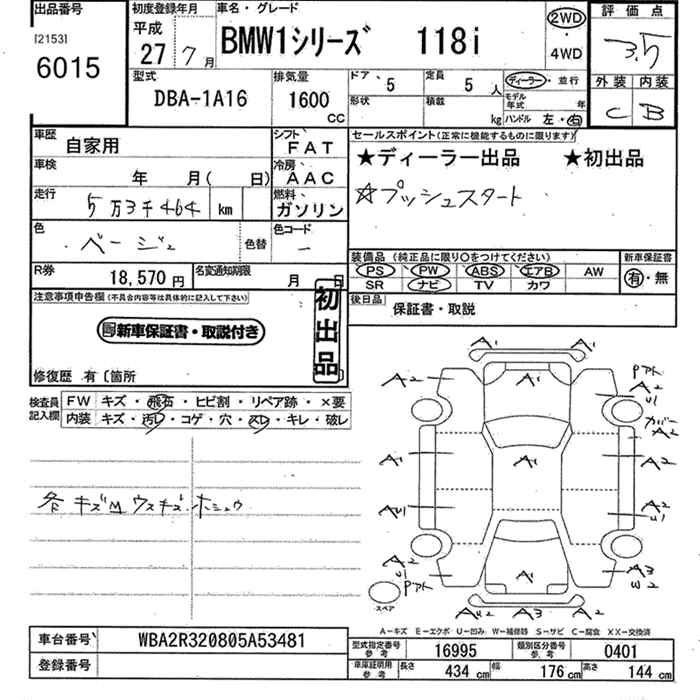 出品番号 初度登録年月 車名・グレード 評価点
[2153] 平成
6015 27年 7月 BMW1シリーズ 118i 2WD・4WD 3.5
型式 排気量 ドア、5 定員 5人 ディーラー・並行 外装 内装
DBA-1A16 1600cc 形状 積載 kg モデル年式 年 C B
ハンドル 左・右
車歴 自家用 シフト FAT セールスポイント(正常に機能するものに限ります)
車検 年 月( 日) 冷房 AAC ★ディーラー出品 ★初出品
走行 5万3千464 km 燃料 ガソリン ☆プッシュスタート
色 ベージュ 色替 色コード −
装備品 (純正品に限り○をつけてください) 新車保証書
PS PW ABS エアB AW 有・無
SR ナビ TV カワ
R券 18,570円 名変通知期限 月 日
後日品 保証書・取説
注意事項申告欄(不具合内容等は具体的に記入して下さい) 初出品
新車保証書・取説付き
修復歴 有〔箇所
検査員記入欄 FW キズ・飛石・ヒビ割・リペア跡・×要
内装 キズ・汚レ・コゲ・穴・スレ・キレ・破レ
各キズM ウスキズ・ホシュウ
A1 A1
A2 Pアト A2 U1
カバー A2
A2 A1 A1 A2
AU1 A2 U1
A2 U1 Pアト A1 A3 W2
スペア
AU2 A3 A2
A−キズ E−エクボ U−凹み W−補修跡 S−サビ C−腐食 XX−交換済
車台番号 WBA2R320805A53481 型式指定番号 参考 16995 類別区分番号 参考 0401
登録番号 車庫証明用 参考 長さ 434cm 幅 176cm 高さ 144cm